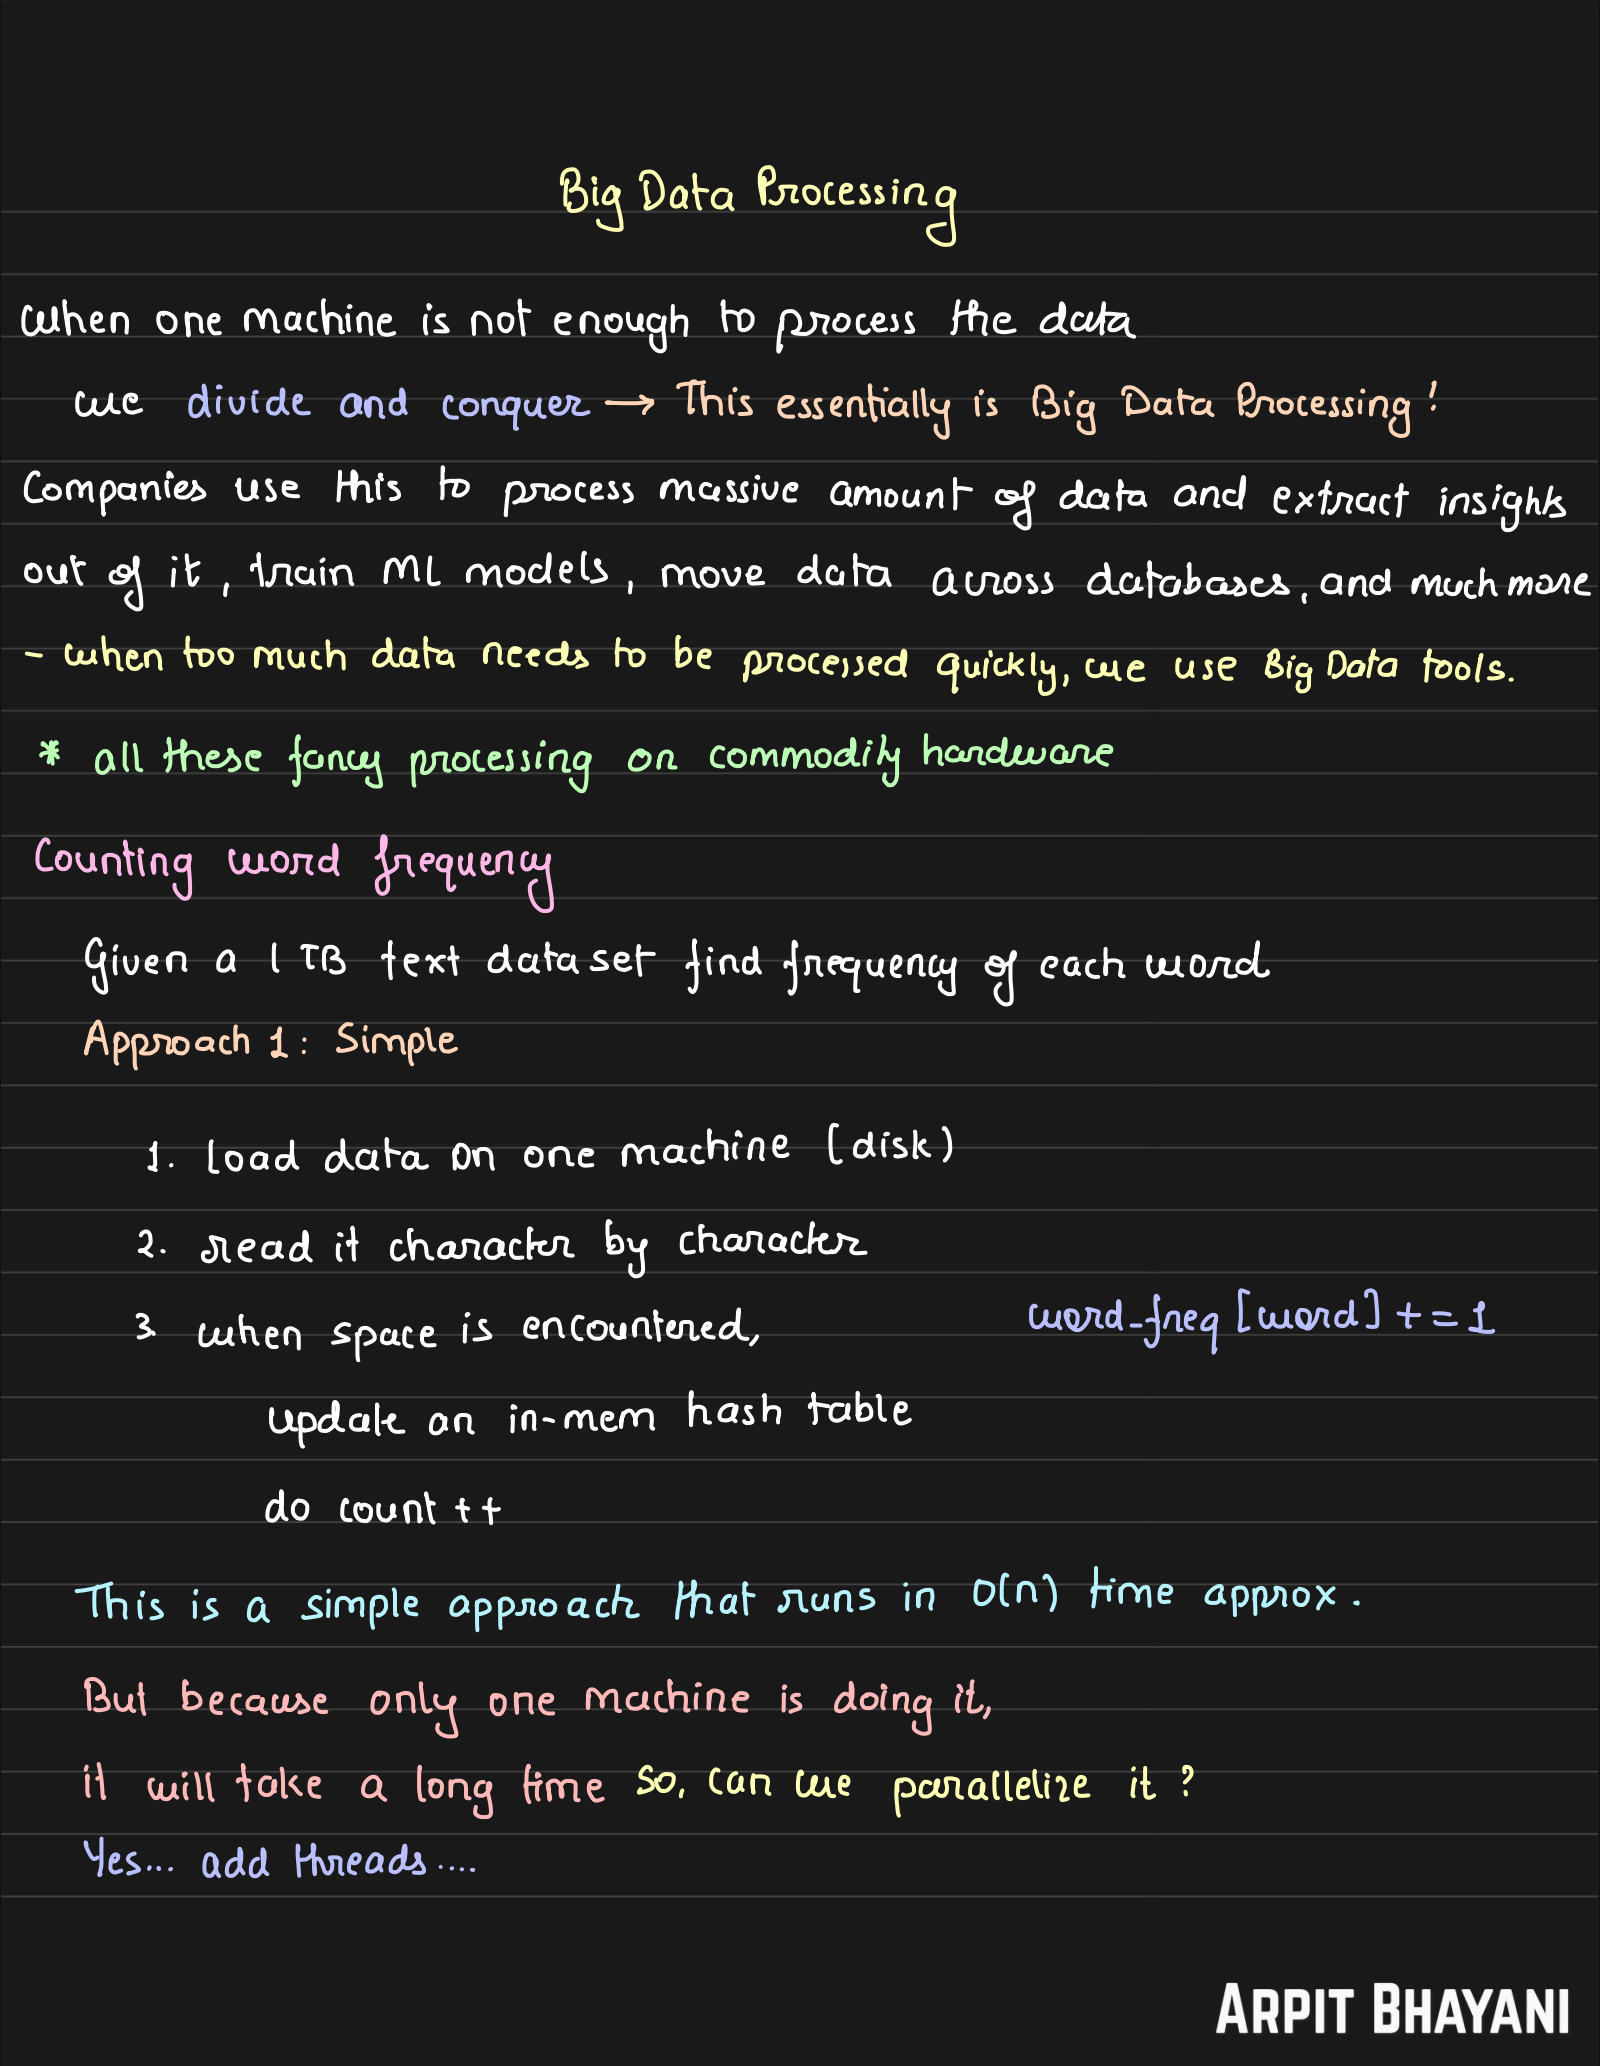 Big Data Processing
When one machine is not enough to process the data
we divide and conquer → This essentially is Big Data Processing!
Companies use this to process massive amount of data and extract insights
out of it, train ML models, move data across databases, and much more
- when too much data needs to be processed quickly, we use Big Data tools.
* all these fancy processing on commodity hardware
Counting word frequency
Given a 1 TB text dataset find frequency of each word
Approach 1: Simple
1. load data on one machine (disk)
2. read it character by character
3. when space is encountered, word_freq[word] += 1
update an in-mem hash table
do count ++
This is a simple approach that runs in O(n) time approx.
But because only one machine is doing it,
it will take a long time So, can we parallelize it?
Yes... add threads....
ARPIT BHAYANI